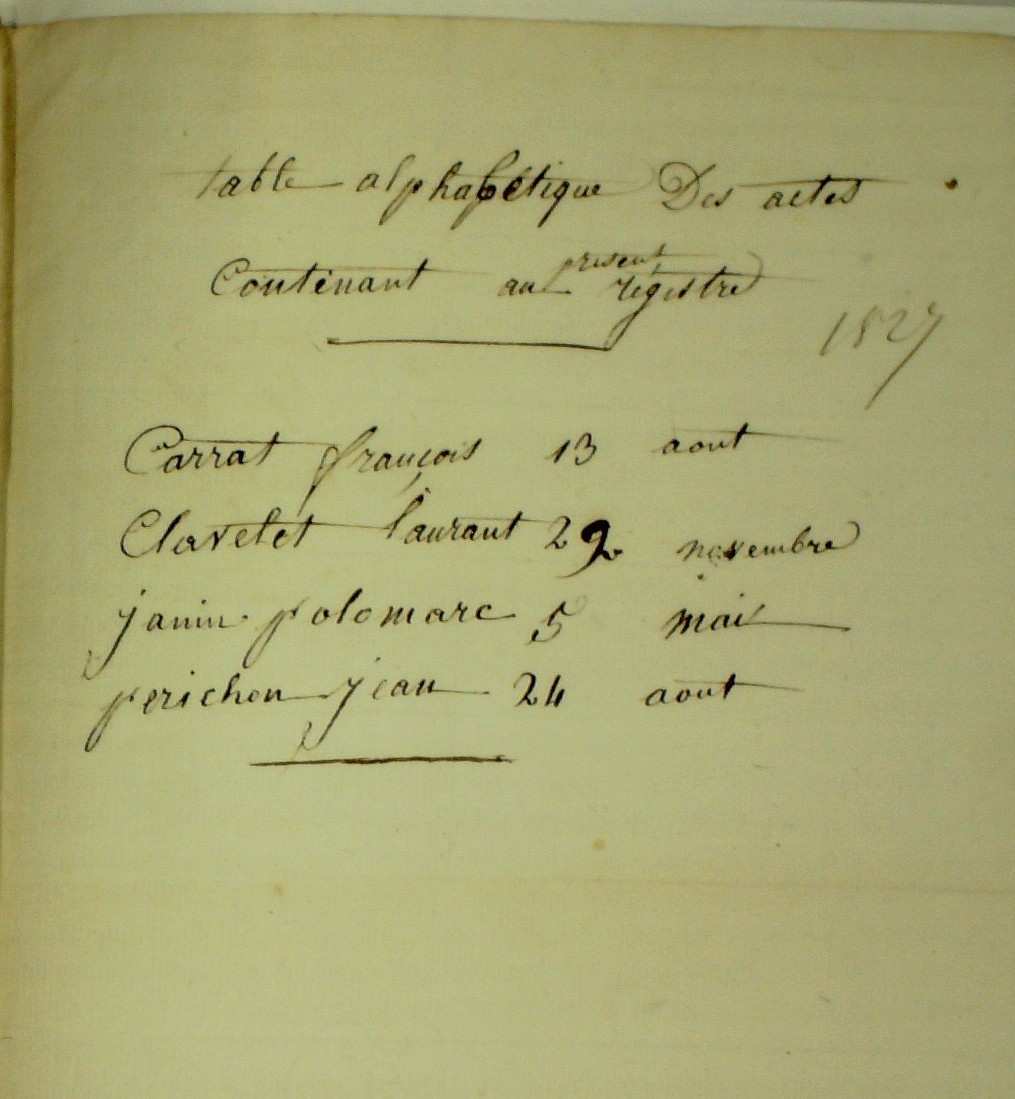 table alphabétique Des actes
Contenant au present régistre
1827
Carrat françois 13 aout
Clavelet Laurant 29 novembre
janin polomarc 5 mai
perichon jean 24 aout